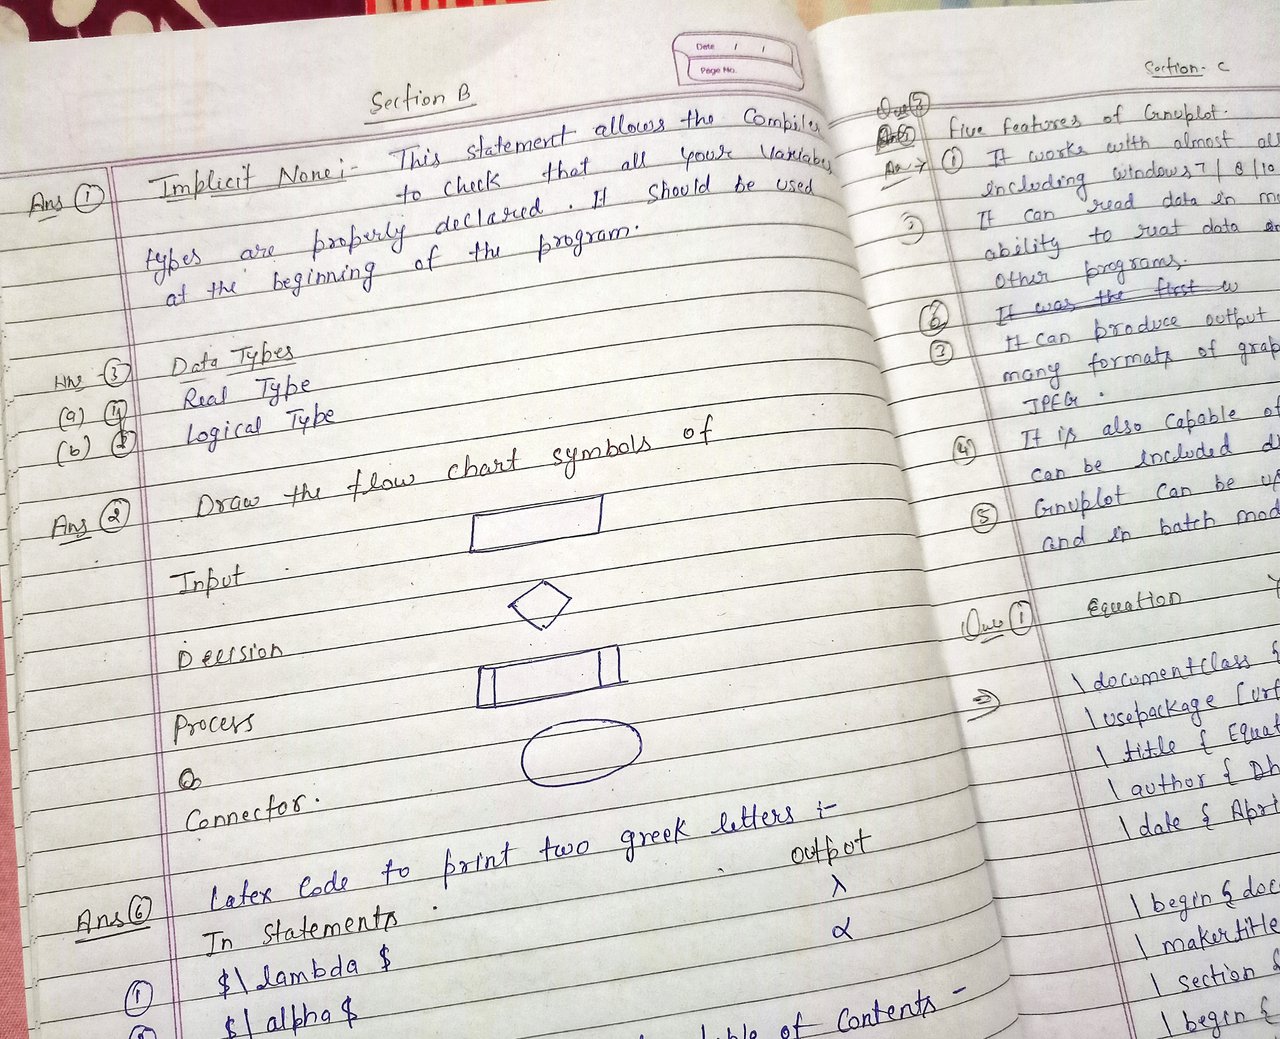 Date / /
Page No.
Section B
Ans ① Implicit None :- This statement allows the Compiler
to check that all your Variables
types are properly declared. It should be used
at the beginning of the program.
③ Data Types
(a) Real Type
(b) Logical Type
Ans ② Draw the flow chart symbols of
Input
Decision
Process
Connector.
Ans ⑥ Latex Code to print two greek letters :-
In Statements . output
① $\lambda $ λ
$\alpha$ α
of Contents -
Section - C
five features of Gnuplot.
Ans → ① It works with almost all
including windows 7/8/10
② It can read data in
ability to data
other programs.
It was the first
③ It can produce output
many formats of grap
JPEG .
④ It is also Capable of
can be included di
⑤ Gnuplot Can be
and in batch mod
Ques ① Equation
\documentclass {
\usepackage [utf
\title { Equat
\author { Dh
\date { Apri
\begin { doc
\makertitle
\section {
\begin {